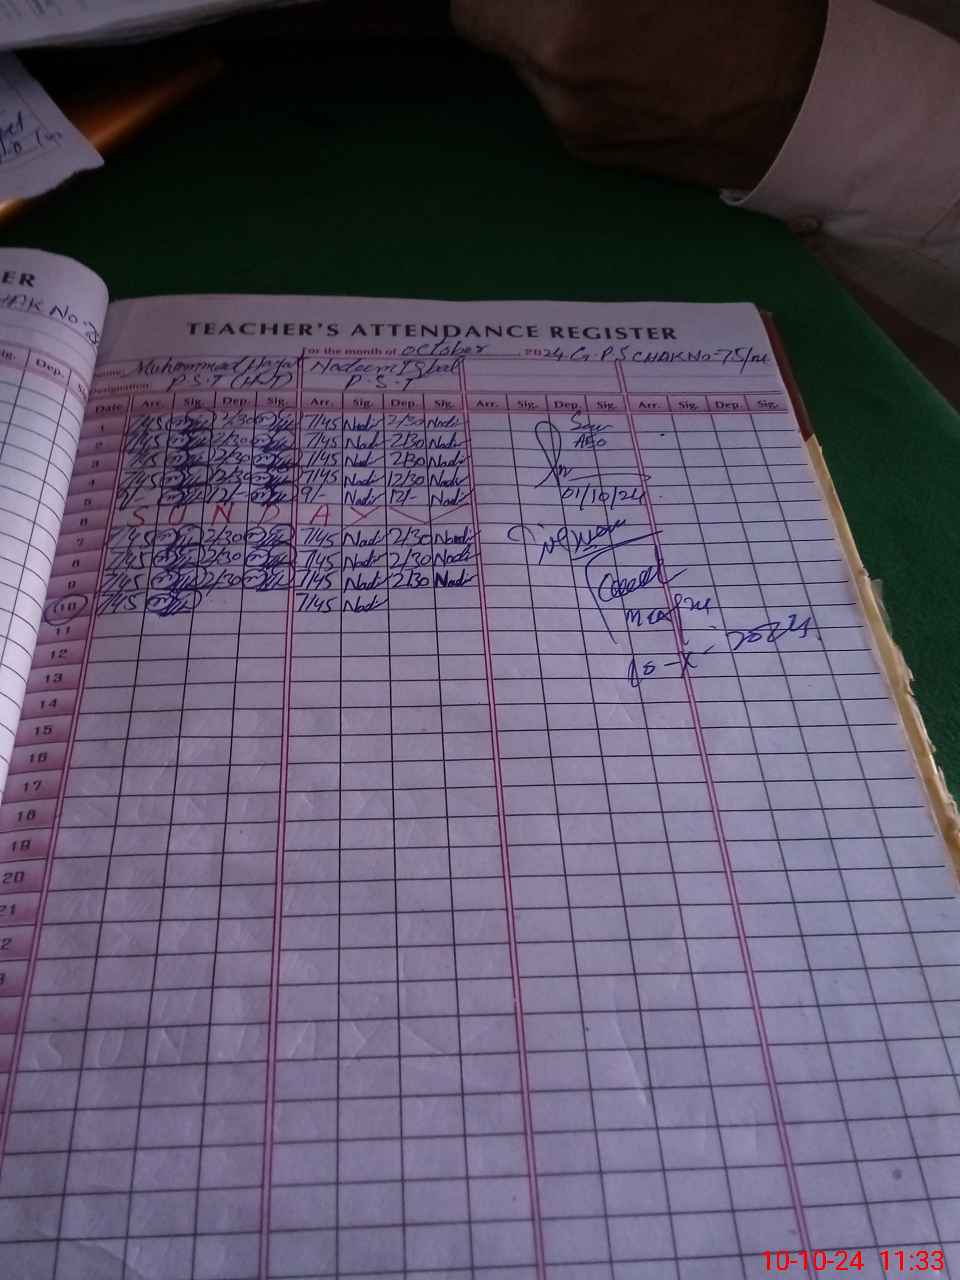 ER
HAK No.
TEACHER'S ATTENDANCE REGISTER
for the month of October, 2024 G.P.S CHAK No-75/
Name Muhammad Nadeem Iqbal
Designation P.S.T (H.T) P.S.T
ig. Dep.
Date Arr. Sig. Dep. Sig. Arr. Sig. Dep. Sig. Arr. Sig. Dep. Sig. Arr. Sig. Dep. Sig.
1 7/45 2/30 7/45 Nadi 2/30 Nadi
2 7/45 2/30 7/45 Nadi 2/30 Nadi
AEO
3 7/45 2/30 7/45 Nadi 2/30 Nadi
4 7/45 12/30 7/45 Nadi 12/30 Nadi
5 9/- 12/- 9/- Nadi 12/- Nadi
01/10/24
6 S U N D A Y
7 7/45 2/30 7/45 Nadi 2/30 Nadi
8 7/45 2/30 7/45 Nadi 2/30 Nadi
9 7/45 2/30 7/45 Nadi 2/30 Nadi
10 7/45 7/45 Nadi
11
12
13
14
15
16
17
18
19
20
21
2
3
10-10-24 11:33